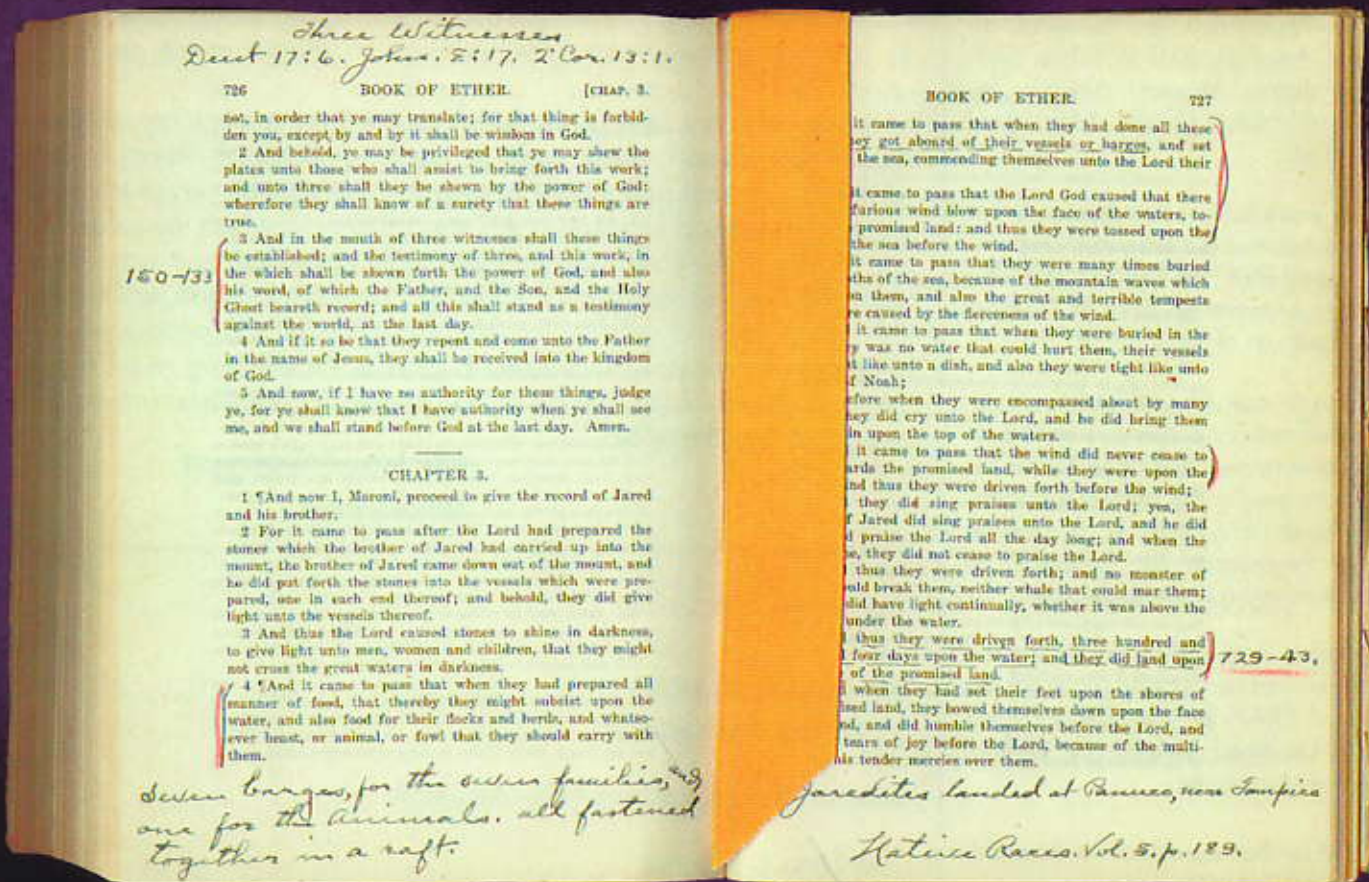 Three Witnesses
Deut 17:6. John. 8:17. 2 Cor. 13:1.
726 BOOK OF ETHER. [CHAP. 3.
not, in order that ye may translate; for that thing is forbid-
den you, except by and by it shall be wisdom in God.
2 And behold, ye may be privileged that ye may shew the
plates unto those who shall assist to bring forth this work;
and unto three shall they be shewn by the power of God:
wherefore they shall know of a surety that these things are
true.
3 And in the mouth of three witnesses shall these things
be established; and the testimony of three, and this work, in
150-133
the which shall be shewn forth the power of God, and also
his word, of which the Father, and the Son, and the Holy
Ghost beareth record; and all this shall stand as a testimony
against the world, at the last day.
4 And if it so be that they repent and come unto the Father
in the name of Jesus, they shall be received into the kingdom
of God.
5 And now, if I have no authority for these things, judge
ye, for ye shall know that I have authority when ye shall see
me, and we shall stand before God at the last day. Amen.
CHAPTER 3.
1 ¶And now I, Moroni, proceed to give the record of Jared
and his brother.
2 For it came to pass after the Lord had prepared the
stones which the brother of Jared had carried up into the
mount, the brother of Jared came down out of the mount, and
he did put forth the stones into the vessels which were pre-
pared, one in each end thereof; and behold, they did give
light unto the vessels thereof.
3 And thus the Lord caused stones to shine in darkness,
to give light unto men, women and children, that they might
not cross the great waters in darkness.
4 ¶And it came to pass that when they had prepared all
manner of food, that thereby they might subsist upon the
water, and also food for their flocks and herds, and whatso-
ever beast, or animal, or fowl that they should carry with
them.
seven barges, for the seven families, and
one for the animals. all fastened
together in a raft.
BOOK OF ETHER. 727
it came to pass that when they had done all these
ey got aboard of their vessels or barges, and set
the sea, commending themselves unto the Lord their
it came to pass that the Lord God caused that there
furious wind blow upon the face of the waters, to-
promised land: and thus they were tossed upon the
the sea before the wind.
it came to pass that they were many times buried
ths of the sea, because of the mountain waves which
n them, and also the great and terrible tempests
re caused by the fierceness of the wind.
it came to pass that when they were buried in the
y was no water that could hurt them, their vessels
t like unto a dish, and also they were tight like unto
f Noah;
efore when they were encompassed about by many
hey did cry unto the Lord, and he did bring them
in upon the top of the waters.
it came to pass that the wind did never cease to
ards the promised land, while they were upon the
nd thus they were driven forth before the wind;
they did sing praises unto the Lord; yea, the
f Jared did sing praises unto the Lord, and he did
d praise the Lord all the day long; and when the
e, they did not cease to praise the Lord.
thus they were driven forth; and no monster of
uld break them, neither whale that could mar them;
did have light continually, whether it was above the
under the water.
thus they were driven forth, three hundred and
four days upon the water; and they did land upon
729-43.
of the promised land.
when they had set their feet upon the shores of
ised land, they bowed themselves down upon the face
nd, and did humble themselves before the Lord, and
tears of joy before the Lord, because of the multi-
his tender mercies over them.
Jaredites landed at Panuco, near Tampico
Native Races. Vol. 5. p. 189.